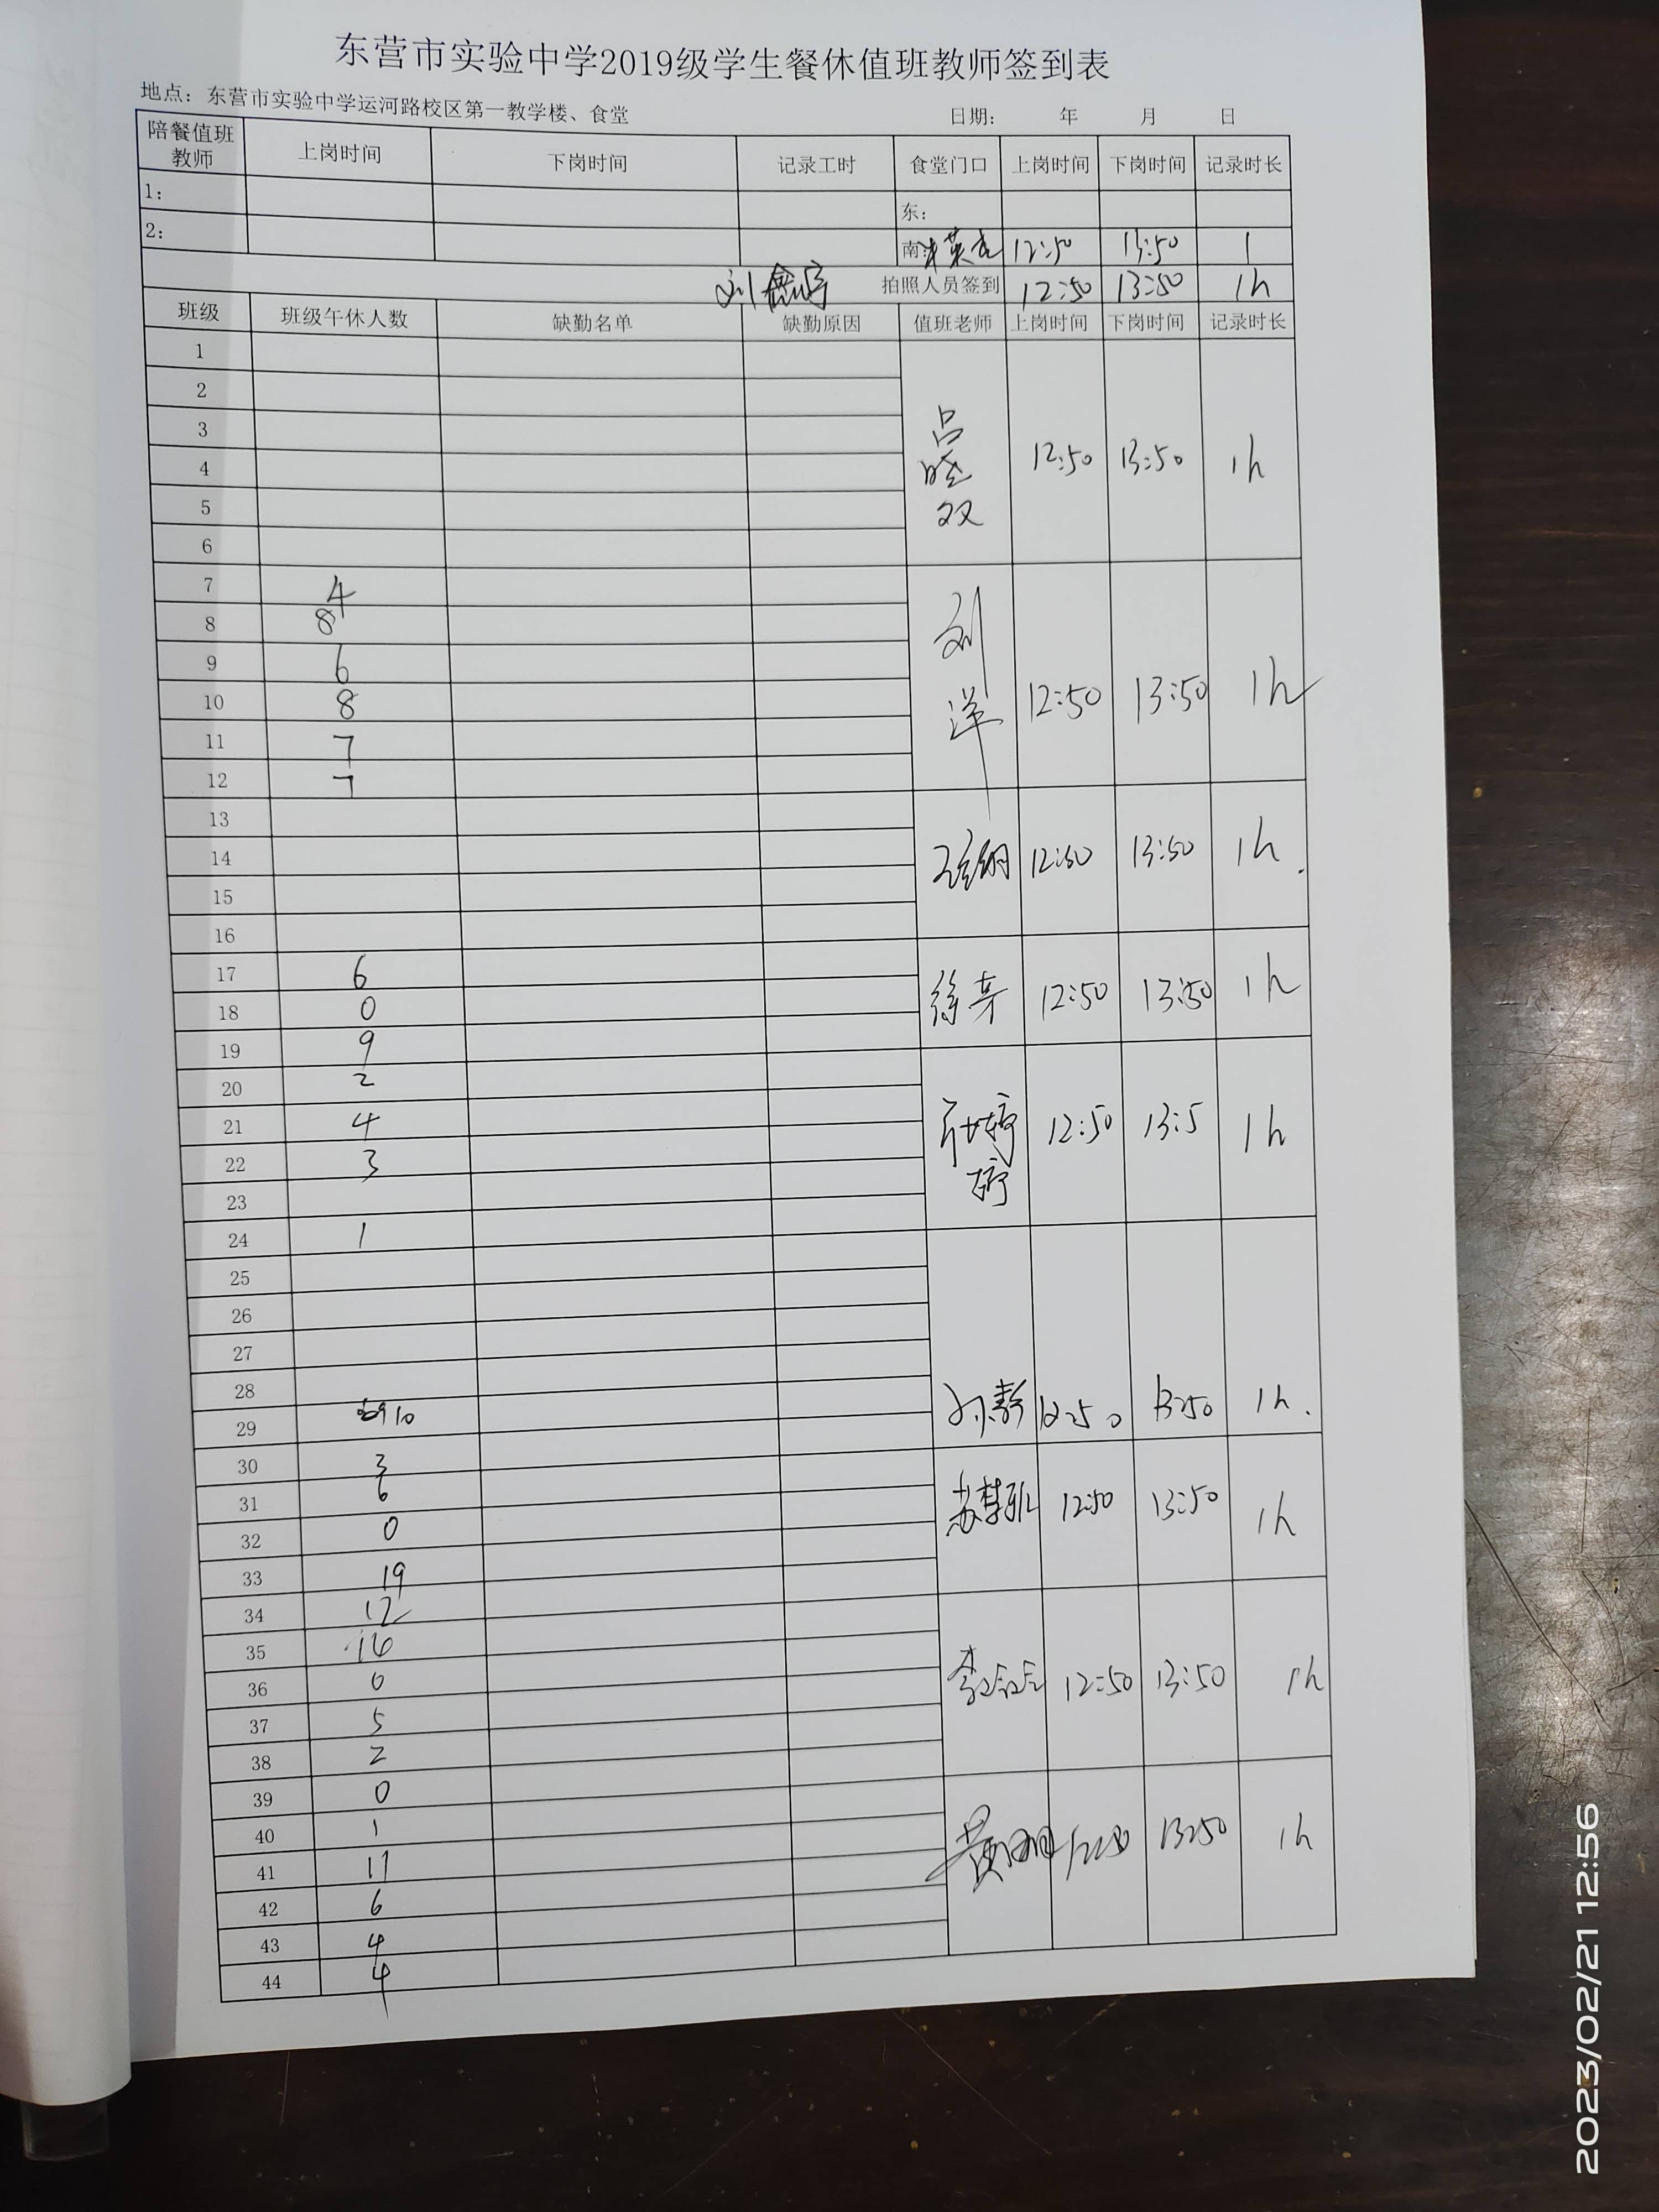 东营市实验中学2019级学生餐休值班教师签到表
地点：东营市实验中学运河路校区第一教学楼、食堂 日期： 年 月 日
陪餐值班教师 上岗时间 下岗时间 记录工时 食堂门口 上岗时间 下岗时间 记录时长
1： 东：
2： 南： 12:50 13:50 1
拍照人员签到 12:50 13:50 1h
班级 班级午休人数 缺勤名单 缺勤原因 值班老师 上岗时间 下岗时间 记录时长
1
2
3
4 12:50 13:50 1h
5
6
7 4
8 8
9 6
10 8 刘洋 12:50 13:50 1h
11 7
12 7
13
14 12:50 13:50 1h
15
16
17 6
18 0 12:50 13:50 1h
19 9
20 2
21 4 12:50 13:5 1h
22 3
23
24 1
25
26
27
28
29 10 孙静 12:50 13:50 1h
30 3
31 6 12:50 13:50 1h
32 0
33 19
34 12
35 16
36 0 12:50 13:50 1h
37 5
38 2
39 0
40 1 13:50 1h
41 11
42 6
43 4
44 4
2023/02/21 12:56